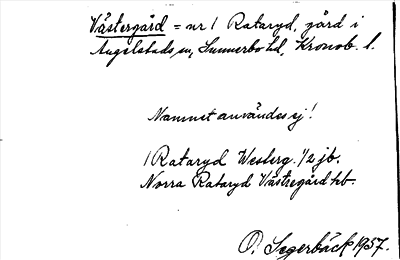 Västergård = nr 1 Rataryd, gård i
Angelstads sn, Sunnerbo hd, Kronob. l.
Namnet användes ej!
1 Rataryd Westerg. 1/2 jb.
Norra Rataryd Västregård hb.
O. Segerbäck 1957.